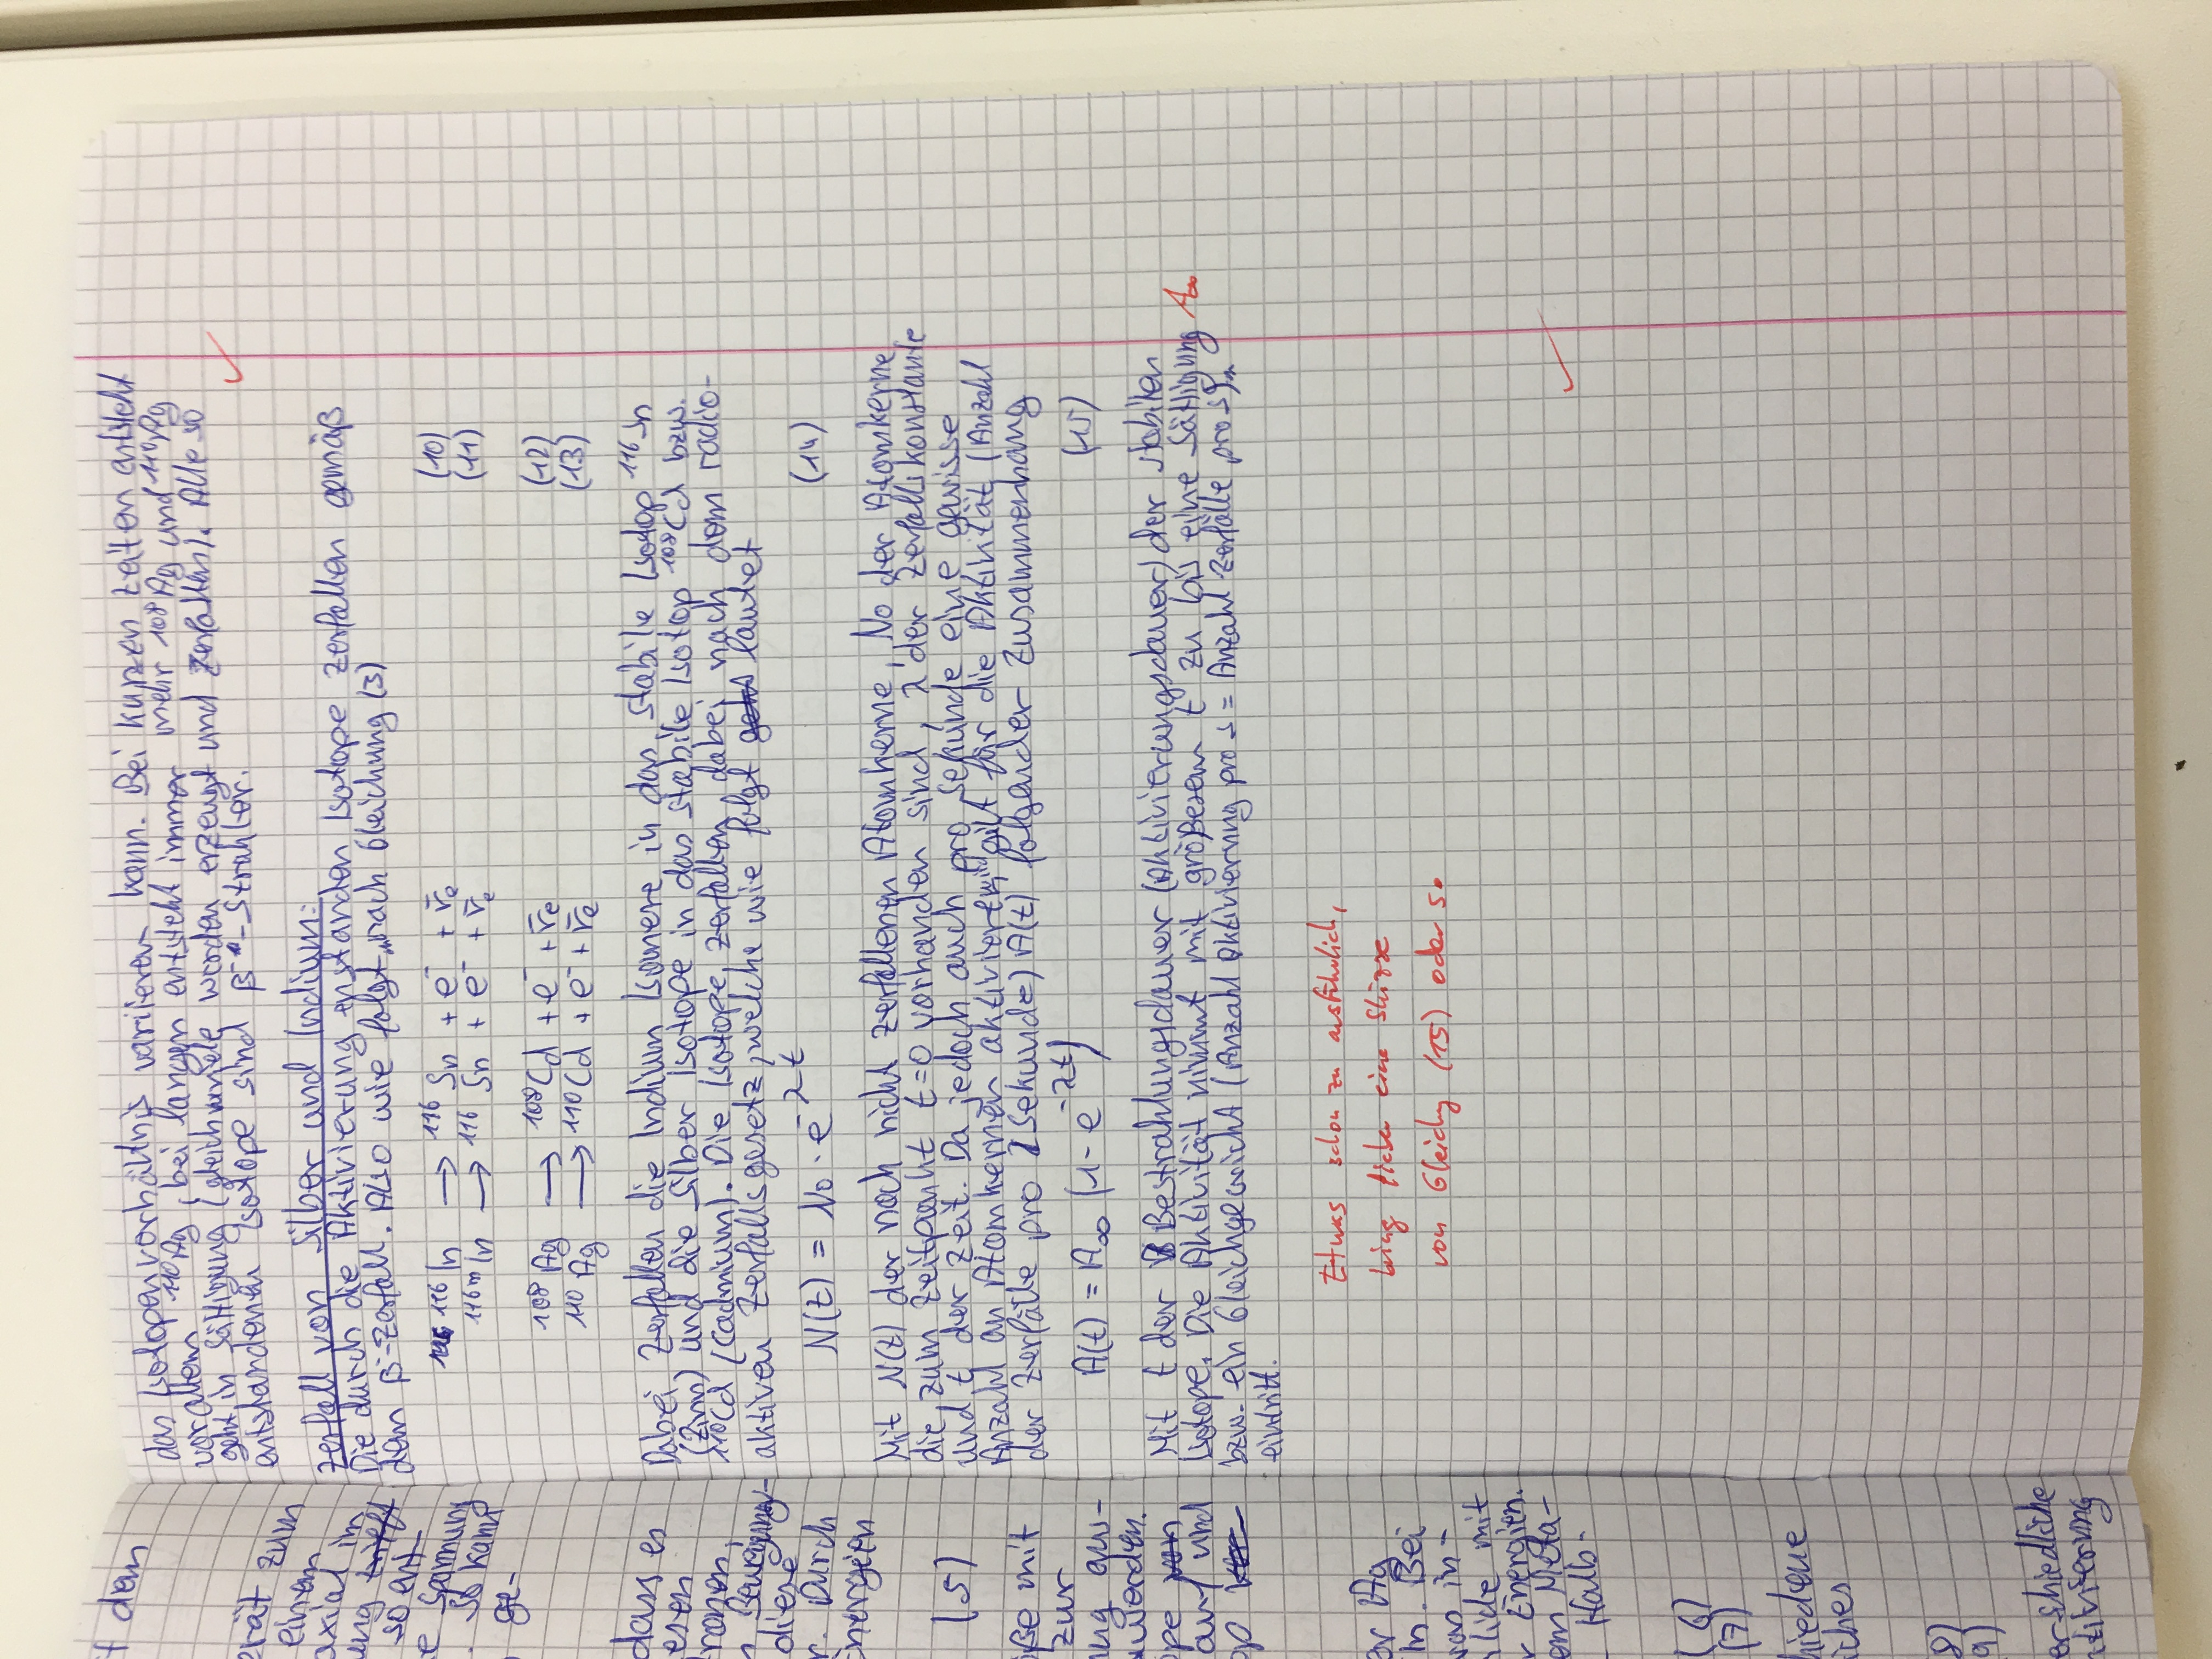 f dem
erät zum
einem
axial im
ung trifft
so ent-
e Spannung
. So kann
ge-
dass es
esen
ronen,
n Bewegung-
diese
r. Durch
Energien
(5)
iße mit
zur
ung aus-
werden.
ope von
auf und
op
er Ag
In. Bei
was in-
lide mit
r Energien.
om Meta-
Halb-
(6)
(7)
hiedene
iches
8)
9)
erschiedliche
ktivierung
das Isotopenverhältnis variieren kann. Bei kurzen Zeiten entsteht
vor allem ¹¹⁰Ag, bei langen entsteht immer mehr ¹⁰⁸Ag und ¹¹⁰Ag
geht in Sättigung (gleich viele werden erzeugt und zerfallen). Alle so
entstandenen Isotope sind β⁻-Strahler.
Zerfall von Silber und Indium:
Die durch die Aktivierung enstanden Isotope zerfallen gemäß
dem β⁻-Zerfall. Also wie folgt nach Gleichung (3)
¹¹⁶In → ¹¹⁶Sn + e⁻ + ν̄e (10)
¹¹⁶ᵐIn → ¹¹⁶Sn + e⁻ + ν̄e (11)
¹⁰⁸Ag → ¹⁰⁸Cd + e⁻ + ν̄e (12)
¹¹⁰Ag → ¹¹⁰Cd + e⁻ + ν̄e (13)
Dabei zerfallen die Indium Isomere in das stabile Isotop ¹¹⁶Sn
(Zinn) und die Silber Isotope in das stabile Isotop ¹⁰⁸Cd bzw.
¹¹⁰Cd (Cadmium). Die Isotope zerfallen dabei nach dem radio-
aktiven Zerfallsgesetz, welche wie folgt lautet
N(t) = N₀ · e^-λt (14)
Mit N(t) der noch nicht zerfallenen Atomkerne, N₀ der Atomkerne
die zum Zeitpunkt t=0 vorhanden sind, λ der Zerfallskonstante
und t der Zeit. Da jedoch auch pro Sekunde eine gewisse
Anzahl an Atomkernen aktiviert wird gilt für die Aktivität (Anzahl
der Zerfälle pro Sekunde) A(t) folgender Zusammenhang
A(t) = A∞ (1 - e^-λt) (15)
Mit t der Bestrahlungsdauer (Aktivierungsdauer) der stabilen
Isotope. Die Aktivität nimmt mit größerem t zu bis eine Sättigung A∞
bzw. ein Gleichgewicht (Anzahl Aktivierung pro s = Anzahl Zerfälle pro s)
eintritt.
Etwas schon zu ausführlich,
bring lieber eine Skizze
von Gleichg (15) oder so